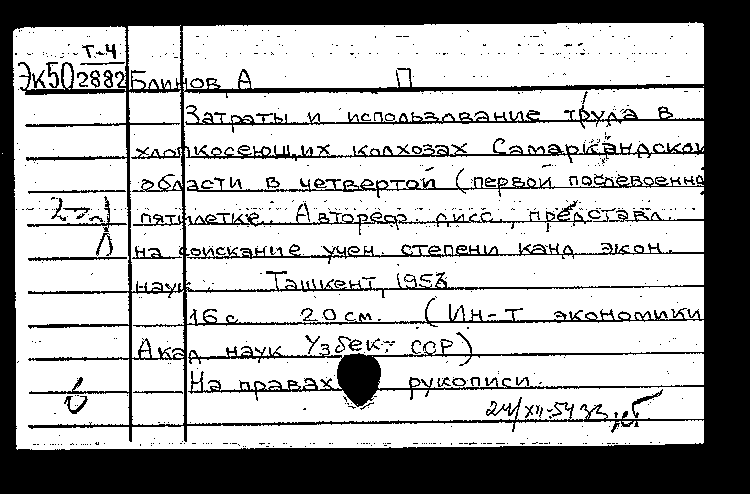 Т-4
Эк50 2882 Блинов, А П
Затраты и использование труда в
хлопкосеющих колхозах Самаркандской
области в четвертой (первой послевоенно
пятилетке. Автореф. дисс., представл.
на соискание учен. степени канд экон.
наук. Ташкент,
16 с 20 см. (Ин-т экономики
Акад наук Узбек. ССР)
На правах рукописи.